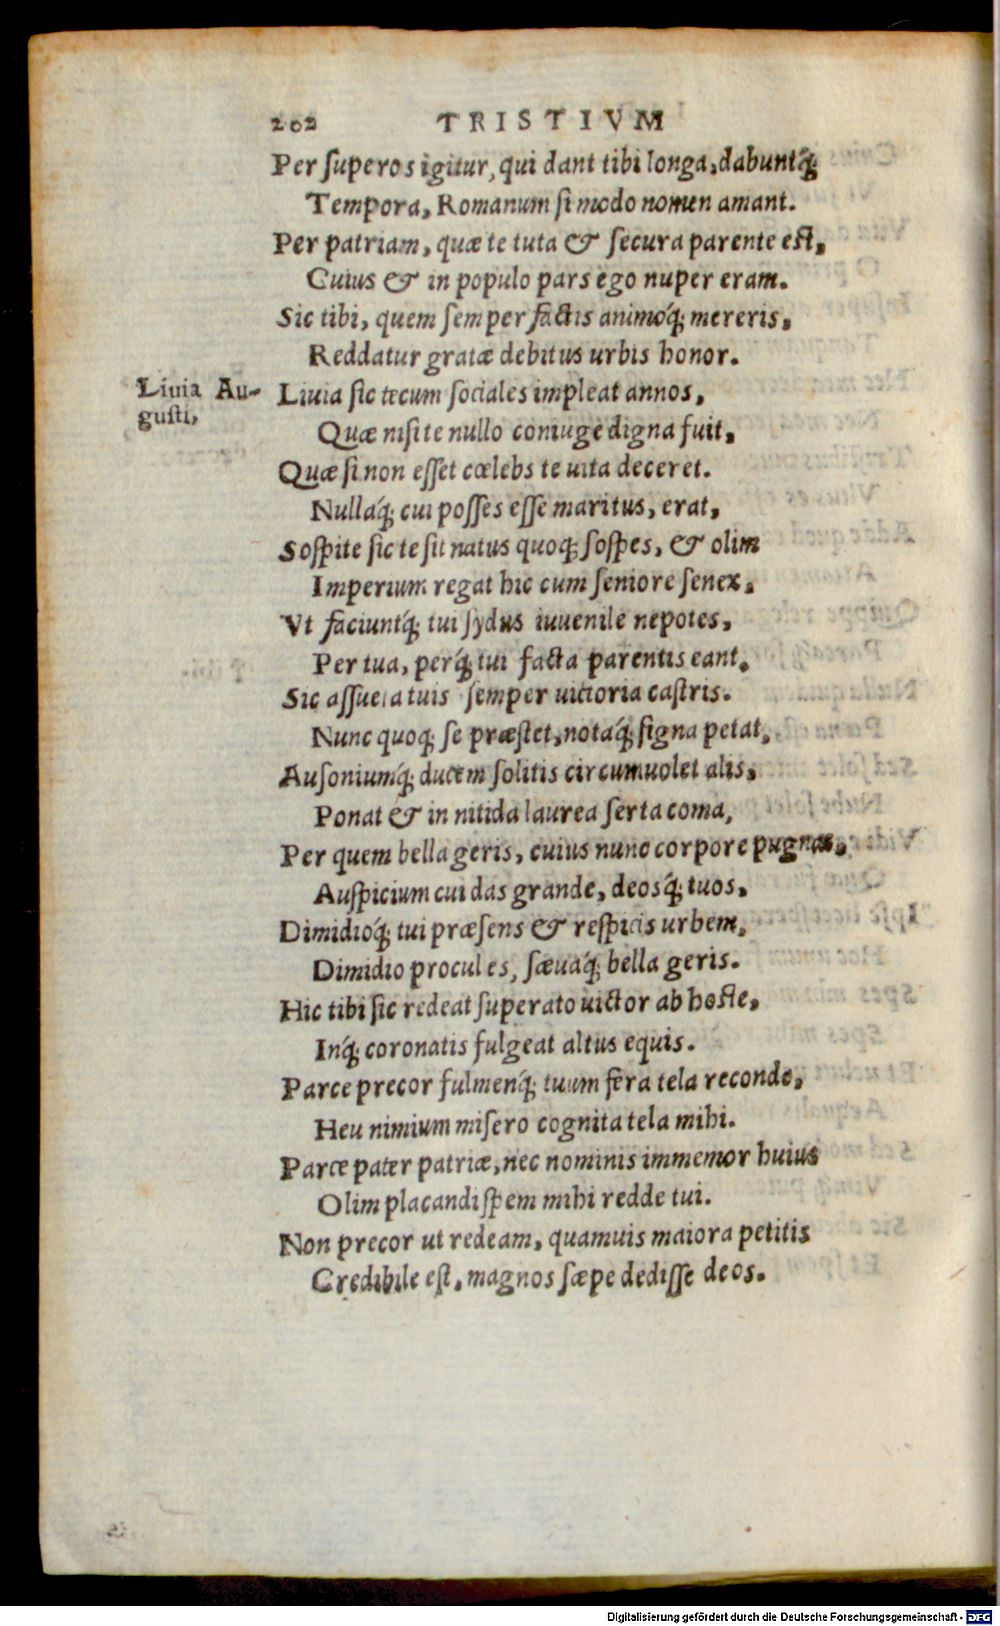 202 TRISTIVM
Per superos igitur, qui dant tibi longa, dabuntq́;
Tempora, Romanum si modo nomen amant.
Per patriam, quæ te tuta & secura parente est,
Cuius & in populo pars ego nuper eram.
Sic tibi, quem semper factis animoq́; mereris,
Reddatur gratæ debitus urbis honor.
Liuia Au-
gusti,
Liuia sic tecum sociales impleat annos,
Quæ nisi te nullo coniuge digna fuit,
Quæ si non esset cœlebs te uita deceret.
Nullaq́; cui posses esse maritus, erat,
Sospite sic te sit natus quoq; sospes, & olim
Imperium regat hic cum seniore senex,
Vt faciuntq́; tui sydus iuuenile nepotes,
Per tua, perq́; tui facta parentis eant.
Sic assueta tuis semper uictoria castris.
Nunc quoq; se præstet, notaq́; signa petat,
Ausoniumq́; ducem solitis circumuolet alis,
Ponat & in nitida laurea serta coma,
Per quem bella geris, cuius nunc corpore pugnas,
Auspicium cui das grande, deosq́; tuos,
Dimidioq́; tui præsens & respicis urbem,
Dimidio procul es, sæuaq́; bella geris.
Hic tibi sic redeat superato uictor ab hoste,
Inq́; coronatis fulgeat altus equis.
Parce precor fulmenq́; tuum fera tela reconde,
Heu nimium misero cognita tela mihi.
Parce pater patriæ, nec nominis immemor huius
Olim placandi spem mihi redde tui.
Non precor ut redeam, quamuis maiora petitis
Credibile est, magnos sæpe dedisse deos.
Digitalisierung gefördert durch die Deutsche Forschungsgemeinschaft - DFG